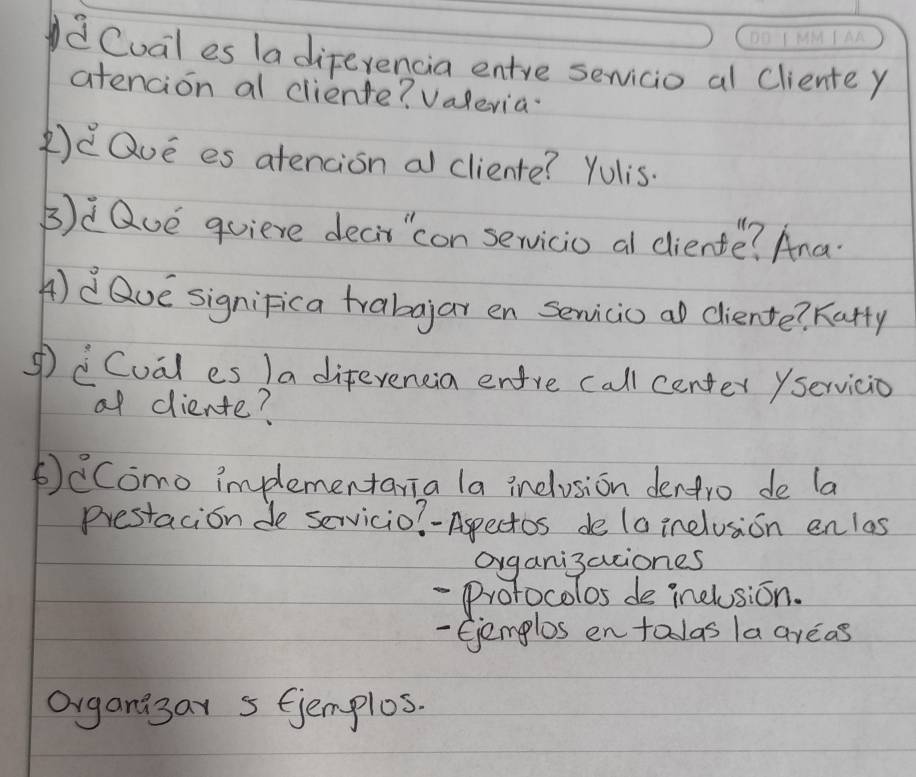 DD | MM | AA
1) ¿Cuál es la diferencia entre servicio al Cliente y
atención al cliente? Valeria.
2) ¿Qué es atención al cliente? Yulis.
3) ¿Qué quiere decir "con servicio al cliente"? Ana.
4) ¿Qué significa trabajar en servicio al cliente? Katty
5) ¿Cuál es la diferencia entre call center y servicio
al cliente?
6) ¿Cómo implementaría la inclusión dentro de la
Prestación de servicio? - Aspectos de la inclusión en las
organizaciones
- Protocolos de inclusión.
- Ejemplos en todas la aréas
Organizar 5 Ejemplos.